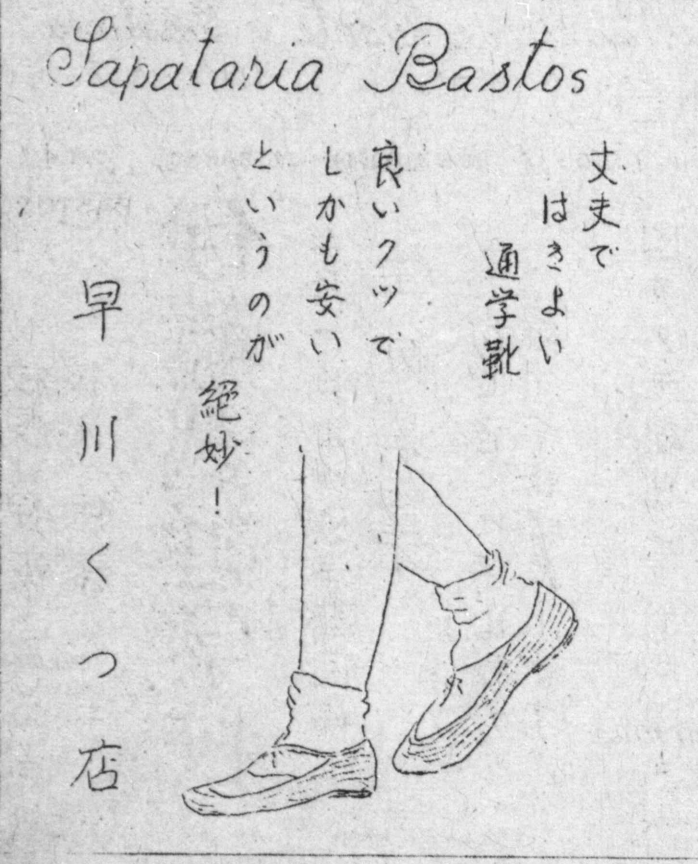 Sapataria Bastos
丈夫で
はきよい
通学靴
良いクツで
しかも安い
というのが
絶妙!
早川くつ店